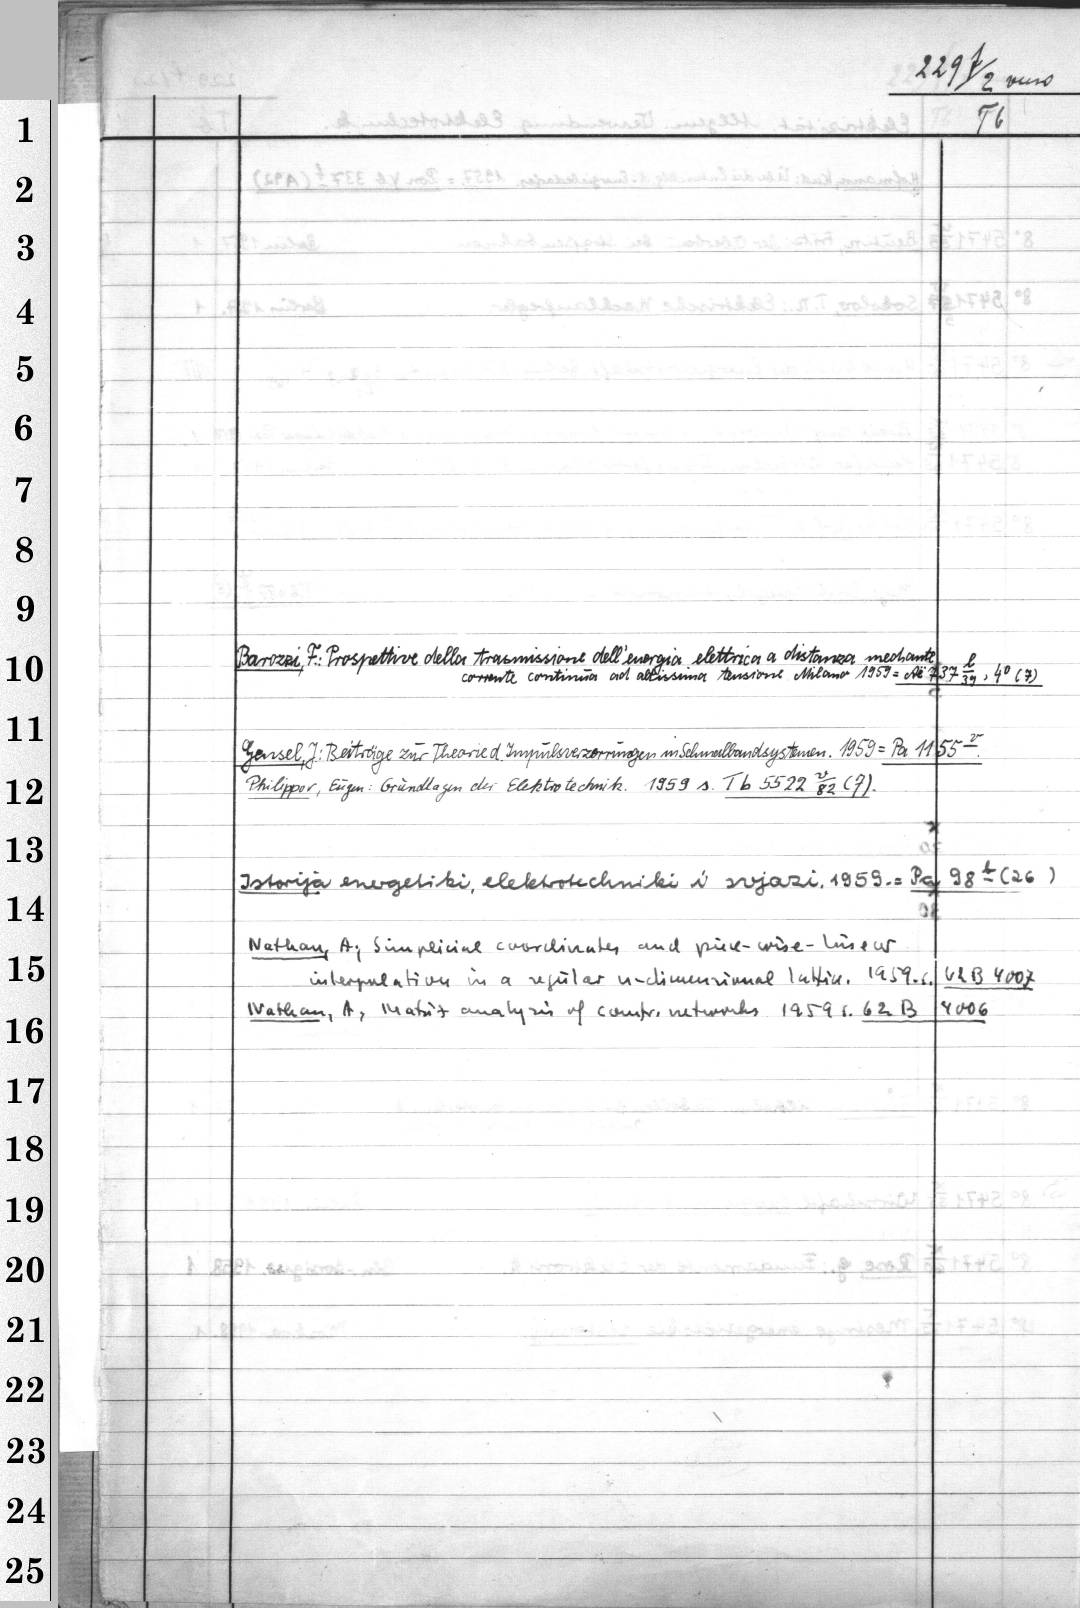 229 1/2 verso
Tb
1
2
3
4
5
6
7
8
9
10
11
12
13
14
15
16
17
18
19
20
21
22
23
24
25
Barozzi, F.: Prospettive della trasmissione dell'energia elettrica a distanza mediante
corrente continua ad altissima tensione Milano 1959 = 737 l/39, 4° (7)
Gensel, J: Beiträge zur Theorie d. Impulsverzerrungen in Schmalbandsystemen. 1959 = Pa 1155 v
Philippov, Eugen: Grundlagen der Elektrotechnik. 1959 s. Tb 5522 v/82 (7).
Istorija energetiki, elektrotechniki i svjazi. 1959. = Pa 98 t (26)
Nathan, A; Simplicial coordinates and piece-wise-linear
interpolation in a regular n-dimensional lattice. 1959. s. 62 B 4007
Nathan, A, Matrix analysis of constr. networks 1959 s. 62 B 4006